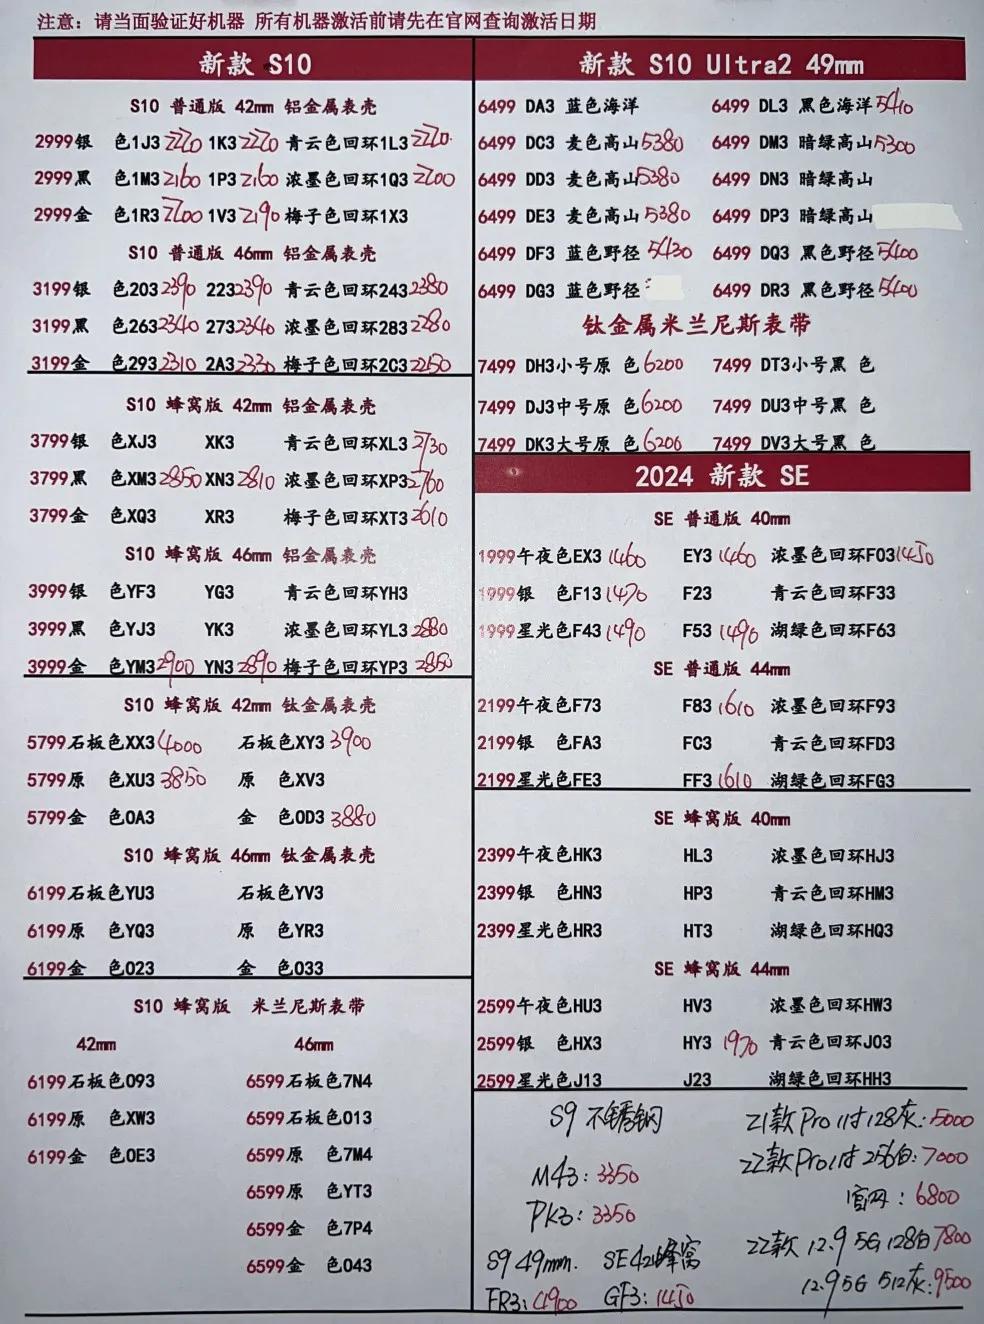 注意：请当面验证好机器 所有机器激活前请先在官网查询激活日期
新款 S10
S10 普通版 42mm 铝金属表壳
2999银 色1J3 2220 1K3 2220 青云色回环1L3 2220
2999黑 色1M3 2160 1P3 2160 浓墨色回环1Q3 2200
2999金 色1R3 2200 1V3 2190 梅子色回环1X3
S10 普通版 46mm 铝金属表壳
3199银 色203 2390 223 2390 青云色回环243 2380
3199黑 色263 2340 273 2340 浓墨色回环283 2280
3199金 色293 2310 2A3 2330 梅子色回环2C3 2250
S10 蜂窝版 42mm 铝金属表壳
3799银 色XJ3 XK3 青云色回环XL3 2730
3799黑 色XM3 2850 XN3 2810 浓墨色回环XP3 2760
3799金 色XQ3 XR3 梅子色回环XT3 2610
S10 蜂窝版 46mm 铝金属表壳
3999银 色YF3 YG3 青云色回环YH3
3999黑 色YJ3 YK3 浓墨色回环YL3 2880
3999金 色YM3 2900 YN3 2890 梅子色回环YP3 2850
S10 蜂窝版 42mm 钛金属表壳
5799石板色XX3 4000 石板色XY3 3900
5799原 色XU3 3850 原 色XV3
5799金 色0A3 金 色0D3 3880
S10 蜂窝版 46mm 钛金属表壳
6199石板色YU3 石板色YV3
6199原 色YQ3 原 色YR3
6199金 色023 金 色033
S10 蜂窝版 米兰尼斯表带
42mm 46mm
6199石板色093 6599石板色7N4
6199原 色XW3 6599石板色013
6199金 色0E3 6599原 色7M4
6599原 色YT3
6599金 色7P4
6599金 色043
新款 S10 Ultra2 49mm
6499 DA3 蓝色海洋 6499 DL3 黑色海洋 5410
6499 DC3 麦色高山 5380 6499 DM3 暗绿高山 5300
6499 DD3 麦色高山 5380 6499 DN3 暗绿高山
6499 DE3 麦色高山 5380 6499 DP3 暗绿高山
6499 DF3 蓝色野径 5430 6499 DQ3 黑色野径 5400
6499 DG3 蓝色野径 6499 DR3 黑色野径 5400
钛金属米兰尼斯表带
7499 DH3小号原 色 6200 7499 DT3小号黑 色
7499 DJ3中号原 色 6200 7499 DU3中号黑 色
7499 DK3大号原 色 6200 7499 DV3大号黑 色
2024 新款 SE
SE 普通版 40mm
1999午夜色EX3 1460 EY3 1460 浓墨色回环F03 1450
1999银 色F13 1470 F23 青云色回环F33
1999星光色F43 1490 F53 1490 湖绿色回环F63
SE 普通版 44mm
2199午夜色F73 F83 1610 浓墨色回环F93
2199银 色FA3 FC3 青云色回环FD3
2199星光色FE3 FF3 1610 湖绿色回环FG3
SE 蜂窝版 40mm
2399午夜色HK3 HL3 浓墨色回环HJ3
2399银 色HN3 HP3 青云色回环HM3
2399星光色HR3 HT3 湖绿色回环HQ3
SE 蜂窝版 44mm
2599午夜色HU3 HV3 浓墨色回环HW3
2599银 色HX3 HY3 1970 青云色回环J03
2599星光色J13 J23 湖绿色回环HH3
S9 不锈钢
M43：3350
PK3：3350
S9 49mm. SE42蜂窝
FR3：4900 GF3：1450
21款Pro 11寸128灰：5000
22款Pro11寸256白：7000
官网：6800
22款 12.9 5G 128白7800
12.9 5G 512灰：9500